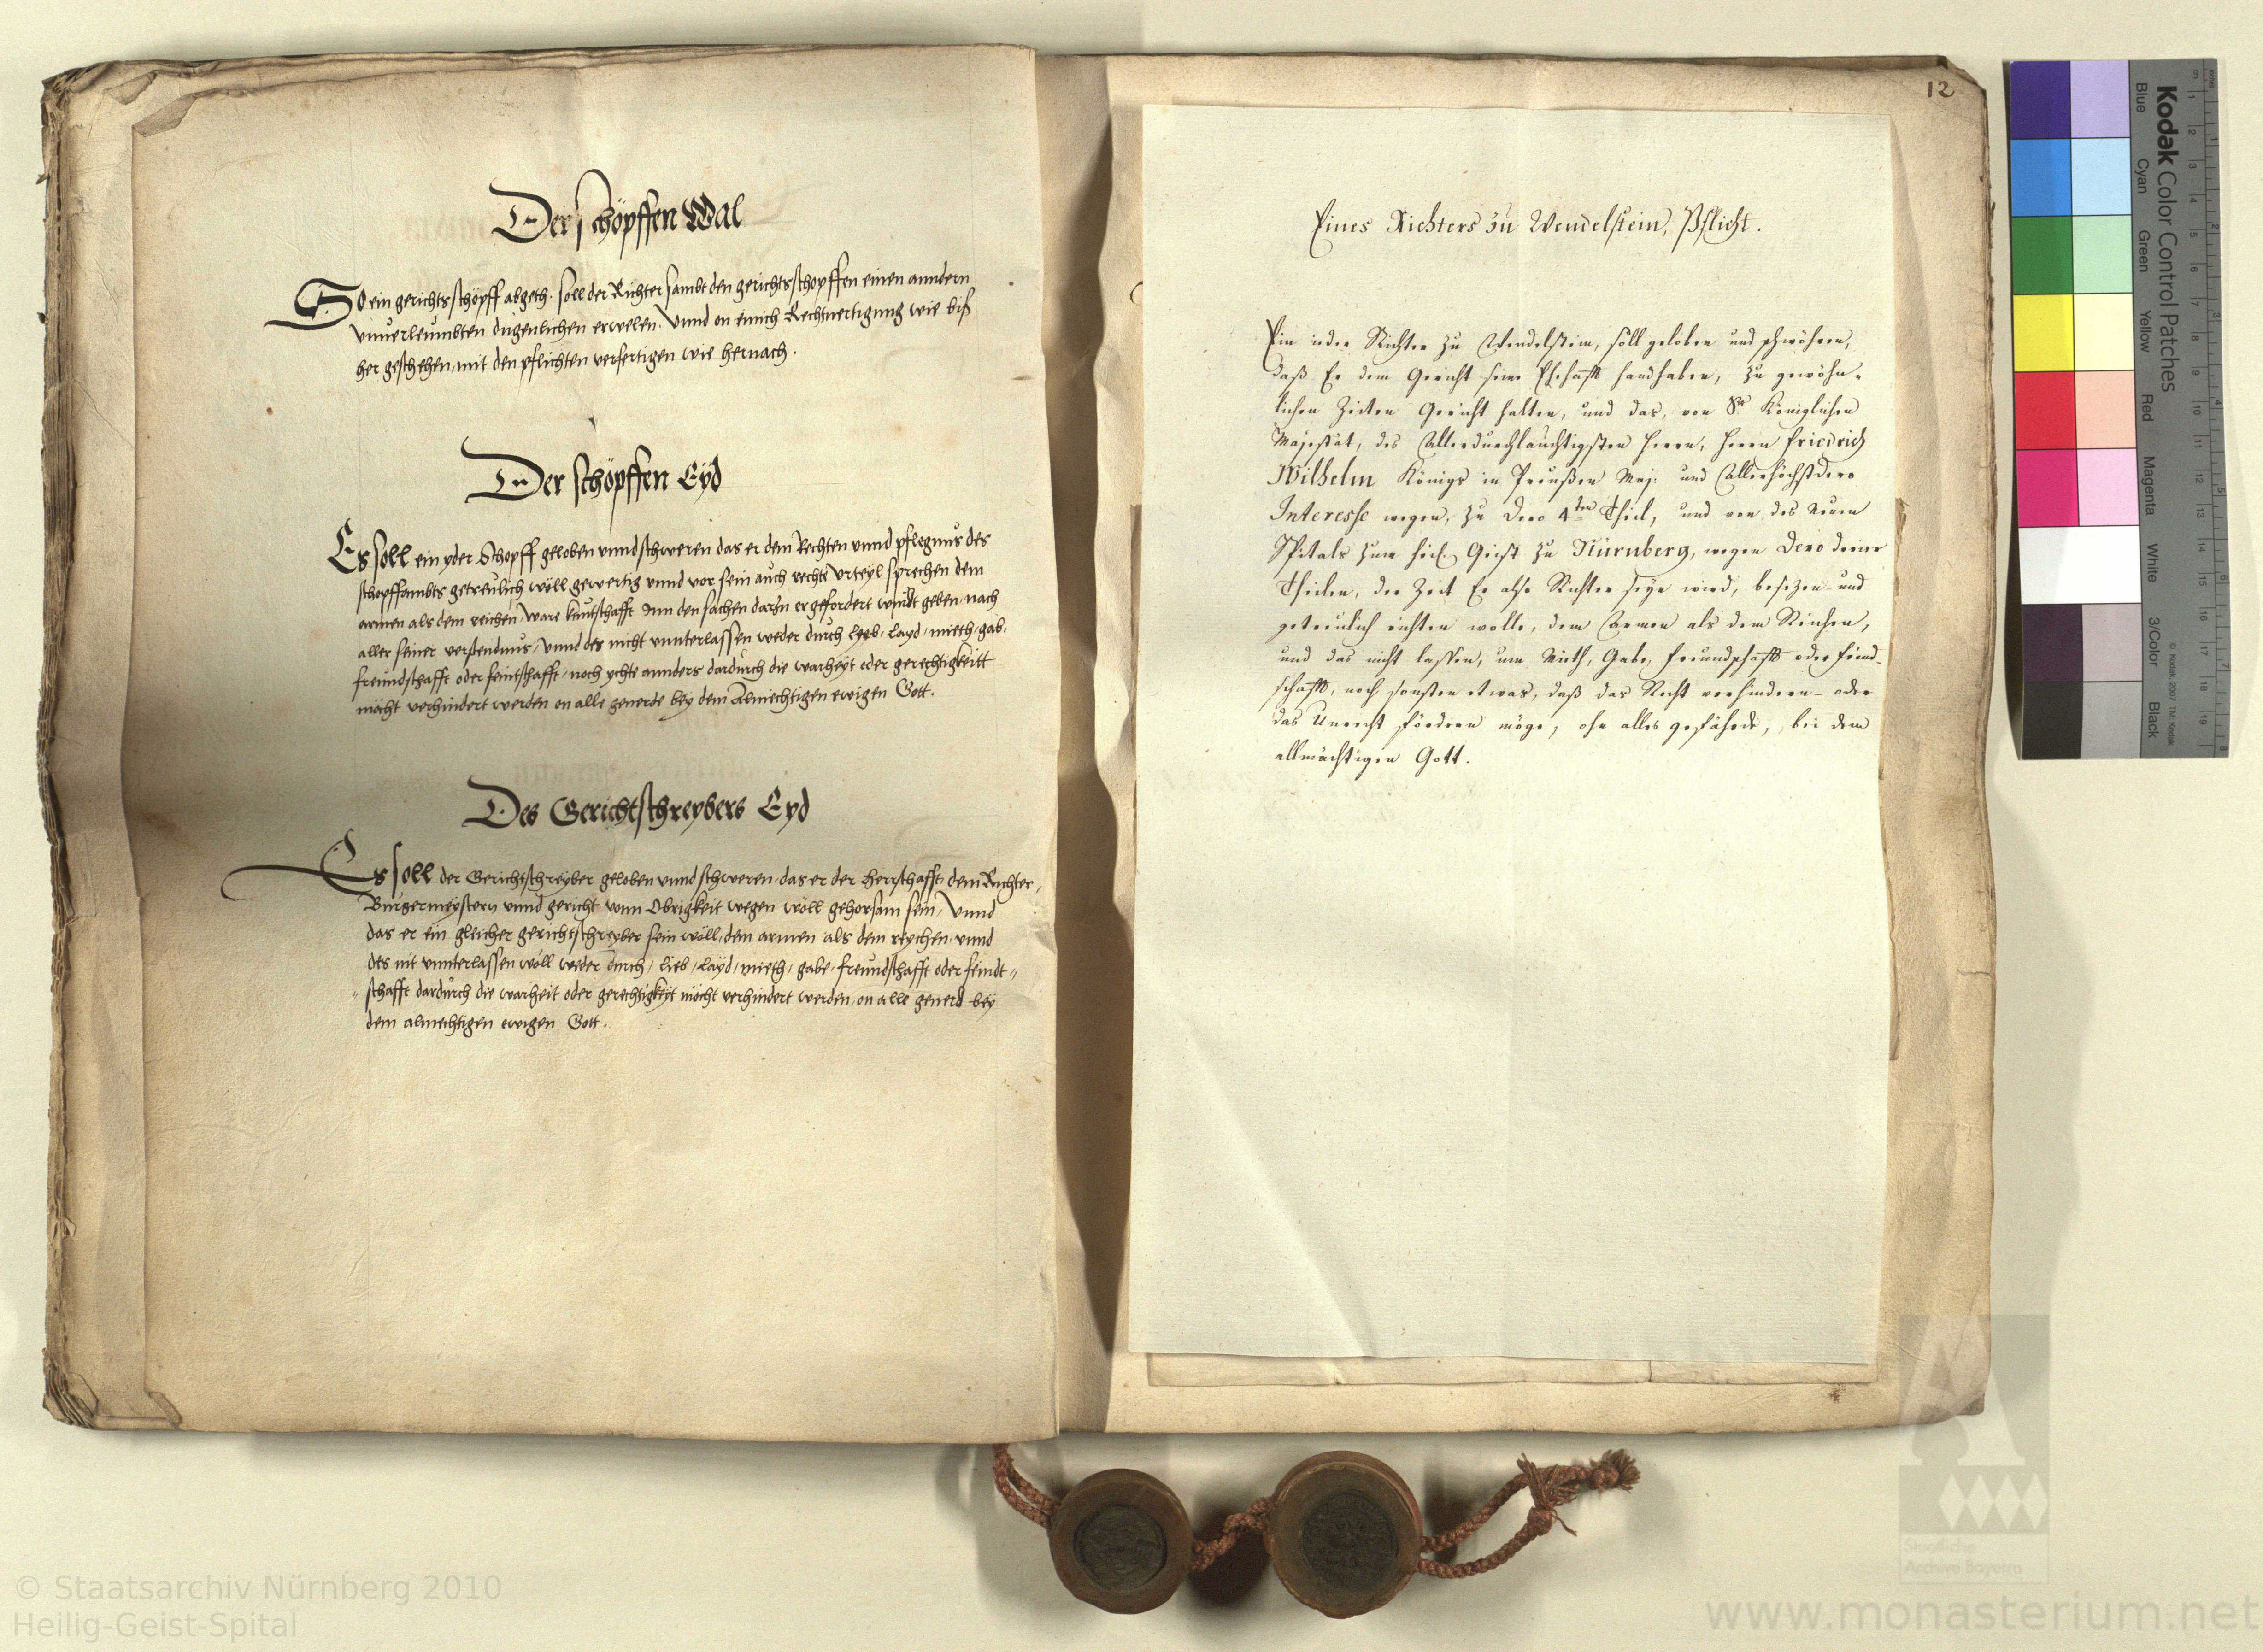 Der schöpffen Wal
So ein gerichtsschöpff abgeth. soll der Richter sambt den gerichtsschopffen einen anndern
vnuerleumbten dugenlichen erwelen. Vnnd on einich Rechtuertigung wie biß
her geschehen, mit den pflichten verfertigen wie hernach.
Der schöpffen Eyd
Es soll ein yder Schopff geloben vnnd schweren das er dem Rechten vnnd pflegnus des
schopffambts getreulich wöll gewertig vnnd vor sein auch rechte vrteyl sprechen dem
armen als dem reichen, ware kuntschafft Inn den sachen darin er gefordert wurdt geben, nach
aller seiner verstendnus, Vnnd des nicht vnnterlassen weder durch lyeb, layd, mieth, gab,
freundschafft oder feintschafft, noch ychts annders dardurch die warheyt oder gerechtigkeitt
möcht verhindert werden on alle geuerde bey dem Almechtigen ewigen Gott.
Des Gerichtschreybers Eyd
Es soll der Gerichtschreyber geloben vnnd schweren, das er der herrschafft, dem Richter,
Burgermeystern vnnd gericht vonn Obrigkeit wegen wöll gehorsam sein, Vnnd
das er ein gleicher gerichtschreyber sein wöll, dem armen als dem reychen, vnnd
des nit vnnterlassen wöll weder durch, lieb, layd, mieth, gabe, freundschafft oder feindt"
"schafft dardurch die warheit oder gerechtigkeyt möcht verhindert werden, on alle geuerd bey
dem almechtigen ewigen Gott.
12
Eines Richters zu Wendelstein, Pflicht.
Ein ieder Richter zu Wendelstein, soll geloben und schwöhren,
daß Er dem Gericht seine Ehehafft handhaben, zu gewöhn-
lichen Zeiten Gericht halten, und das, von Sr Königlichen
Majestät, des Allerdurchlauchtigsten Herrn, Herrn Friedrich
Wilhelm Königs in Preußen Maj: und Allerhöchstdero
Interesse wegen, zu Dero 4ten Theil, und von des Neuen
Spitals zum heil. Geist zu Nürnberg, wegen Dero dreier
Theilen, die Zeit Er also Richter seyn wird, besizen- und
getreulich richten wolle, dem Armen als dem Reichen,
und das nicht lassen, um Mieth, Gabe, freundschafft oder feind-
schafft, noch sonsten etwas, daß das Recht verhindern- oder
das Unrecht fördern möge, ohn alles gefährde, bei dem
allmächtigen Gott.
Kodak Color Control Patches
Blue Cyan Green Yellow Red Magenta White 3/Color Black
© Kodak, 2007 TM: Kodak
© Staatsarchiv Nürnberg 2010
Heilig-Geist-Spital
Staatliche
Archive Bayerns
www.monasterium.net